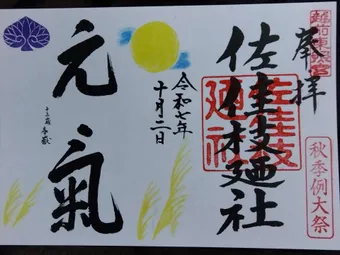 越前東照宮
奉拝
佐佳枝廼社
佐佳枝廼社
秋季例大祭
令和七年
十月二日
元氣